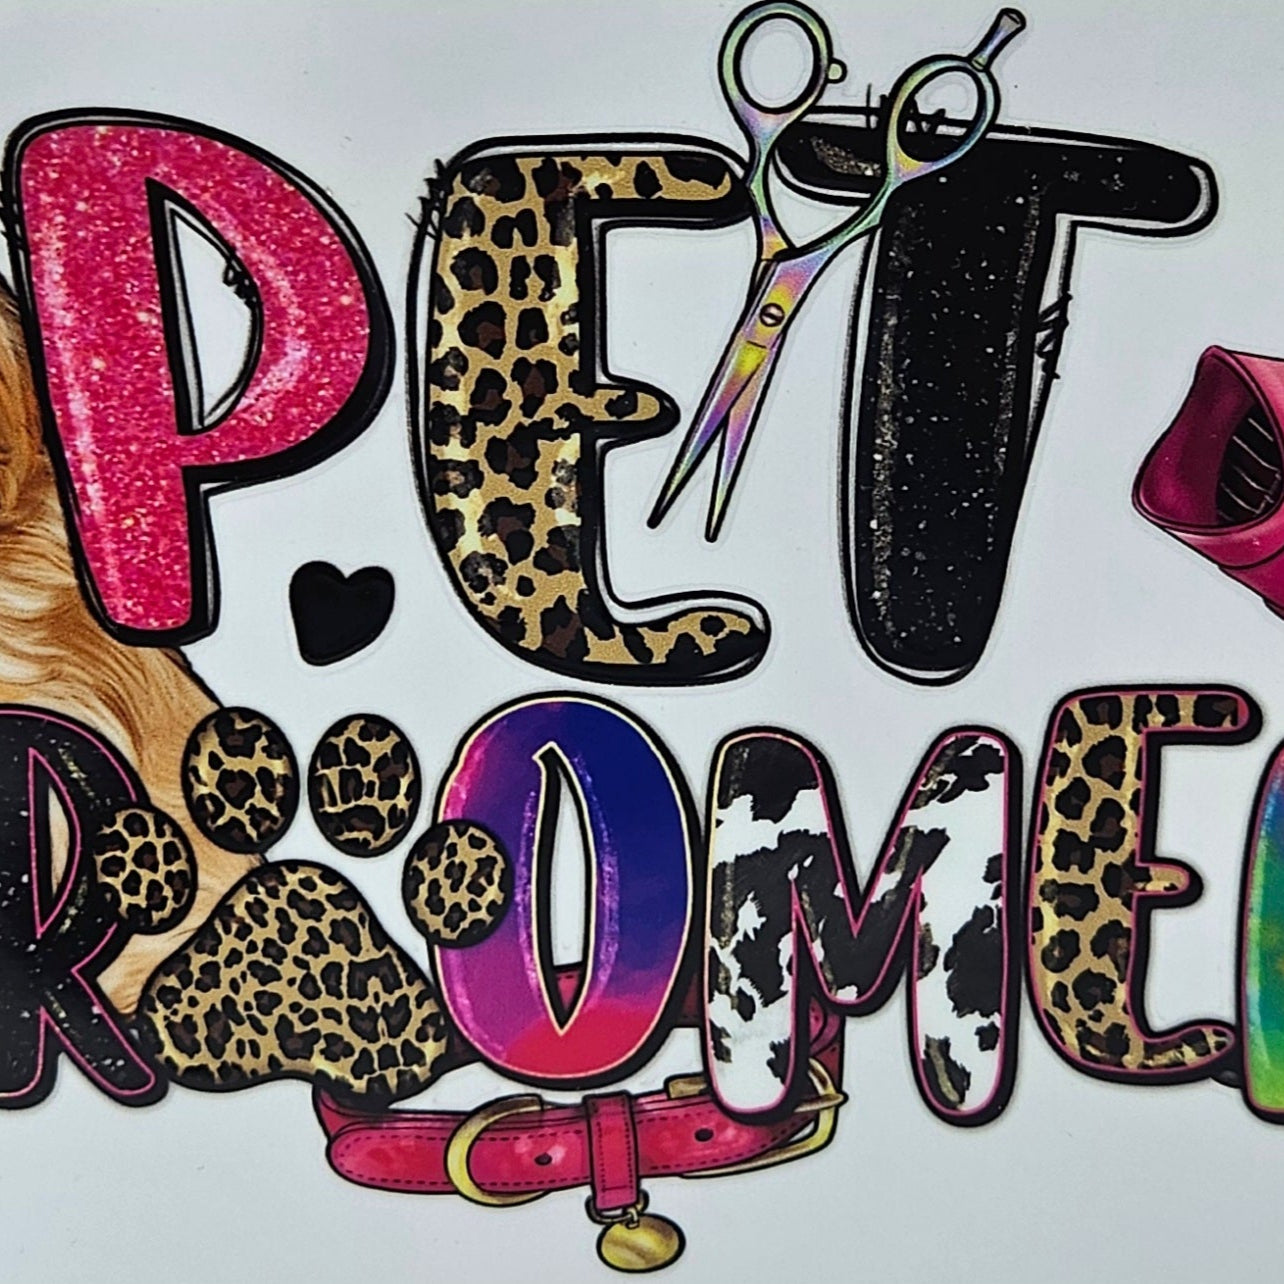 PET
ROOME